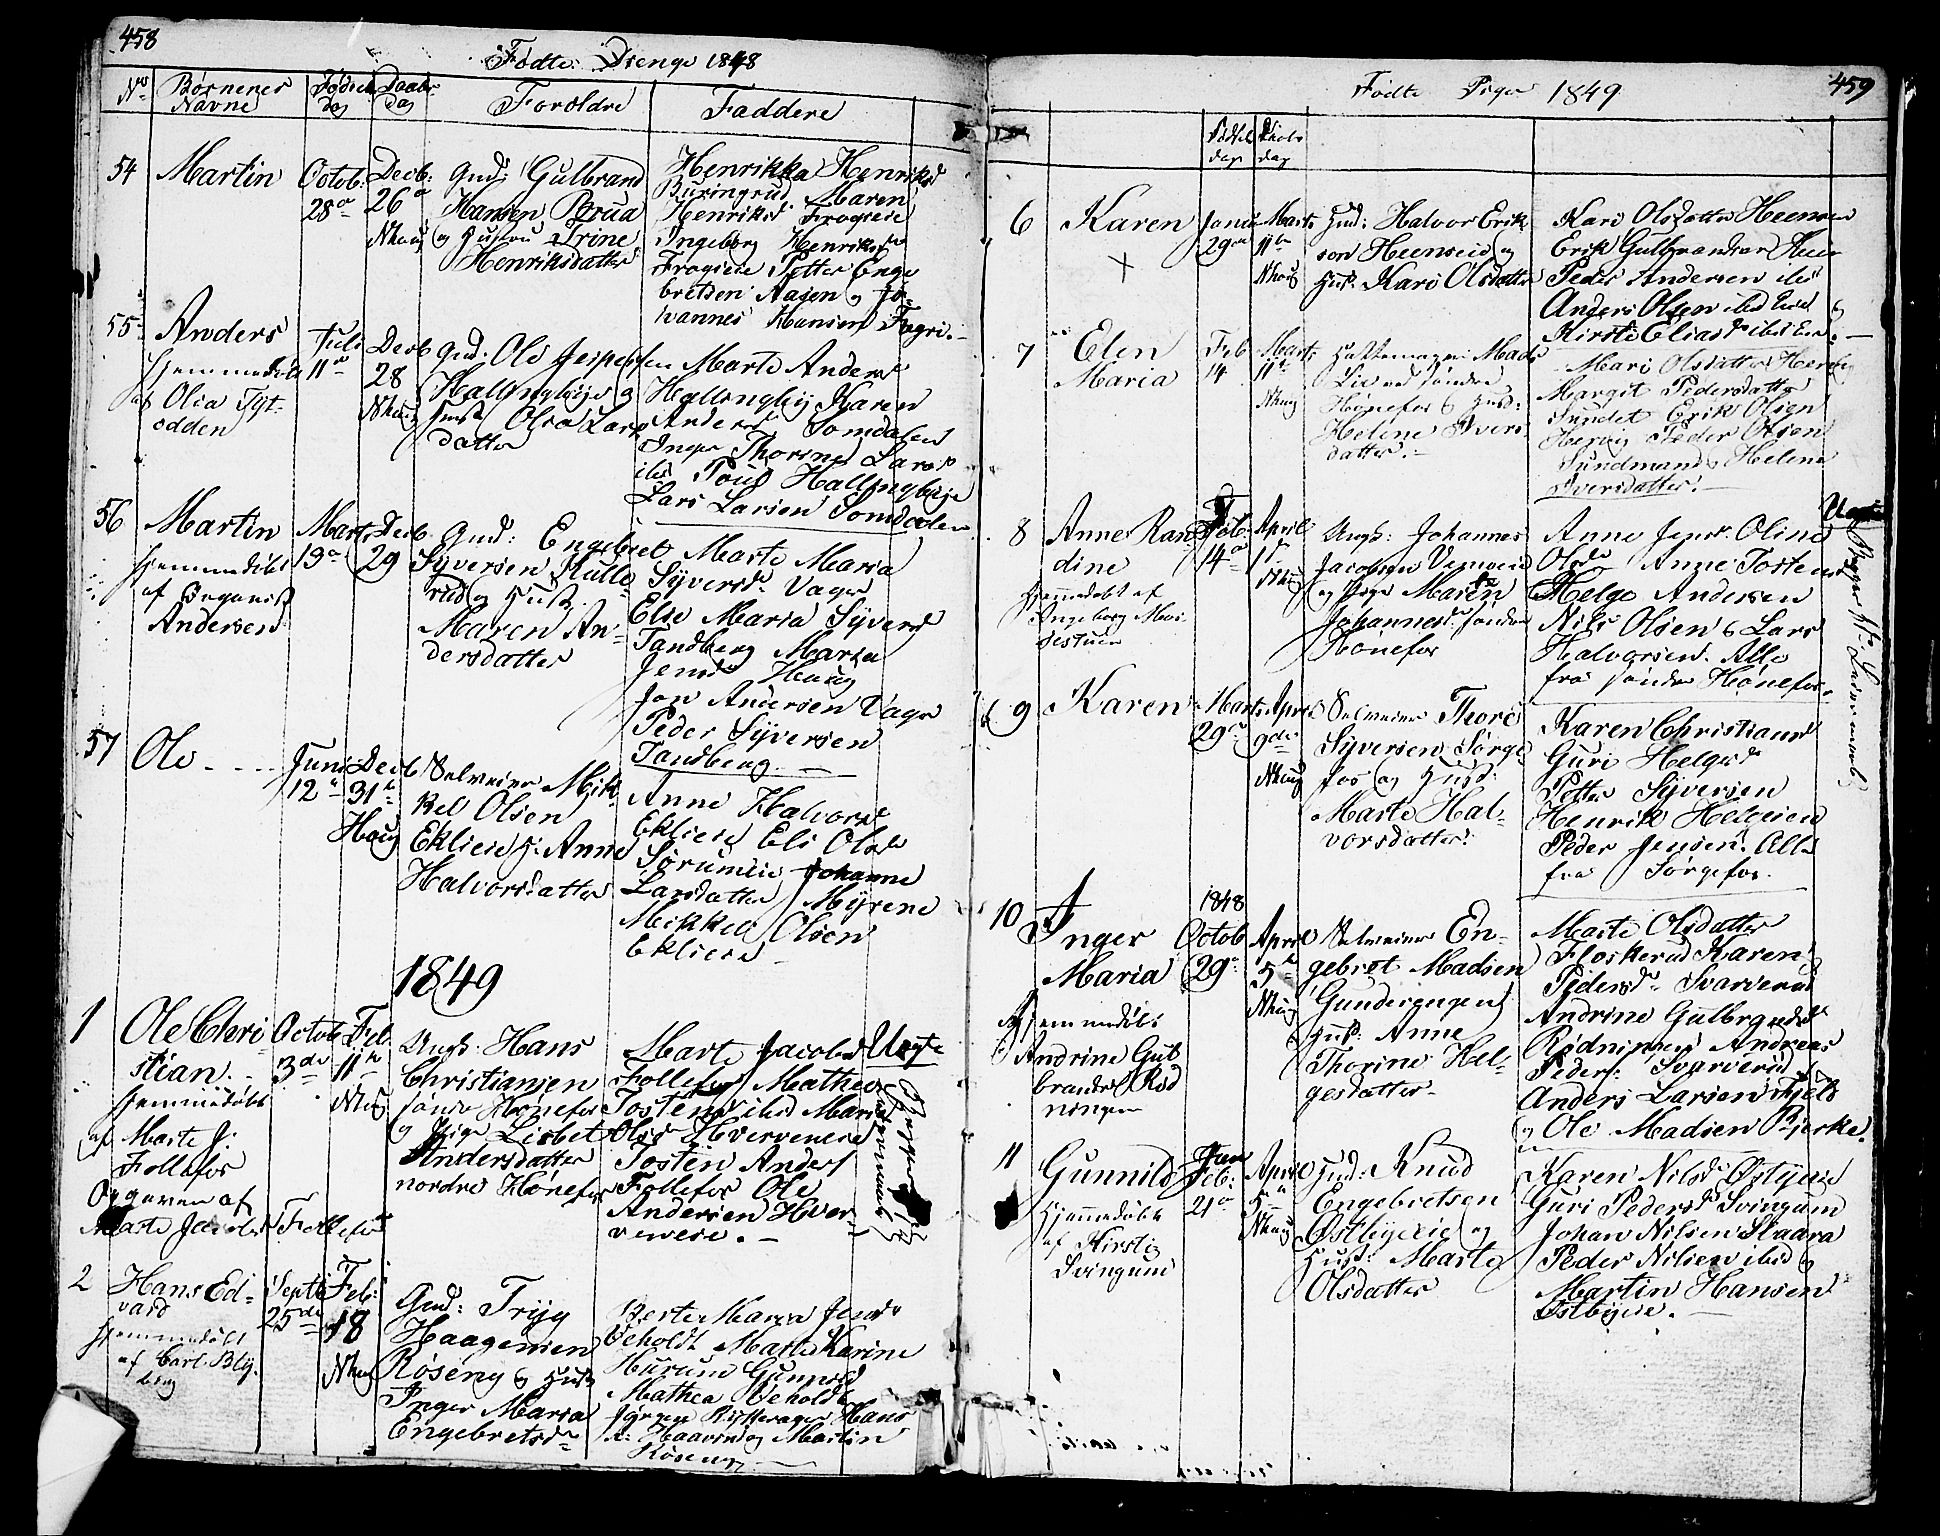 458
Fødte Drenge 1848
No Børnenes Navne Fødsels Dag Daabs Dag Forældre Faddere
54 Martin
Octob: 28de
Decb. 26de
Nhaug
Gmd: Gulbrand
Hansen Brua
og Hustru Trine
Henriksdatter
Henrikka Henriksd
Buringrud Maren
Henriksd Frogseie
Ingeborg Henriksd
Frogseie Petter Enge
bretsen Aasen og Jo-
hannes Hansen
55 Anders
Hjemmedøbt
af Olia Tyt-
odden
Juli 11te
Decb 28
Nhaug
Gmd: Ole Jespers
en Hallingbye og
Hust Olea Lars
datter
Marte Anders
Hallingby Karen
Andersd Somdalen
Inger Thorine Larsd
ibd Poul Hallingbye
Lars Larsen Somdalen
56 Martin
Hjemmedøbt
af Organist
Andersen
Marts 19de
Decb. 29
Gmd: Engebret
Syversen Kulle
rud og Hust.
Maren An-
dersdatter
Marte Maria
Syversd. Vager
Else Maria Syversd
Tandberg Maria
Jensd Haug
Jon Andersen Vager
Peder Syversen
Tandberg.
57 Ole
Juni 12te
Decb 31te
Haug
Selveier Mik
kel Olsen
Eklieie H: Anne
Halvorsdatter
Anne Halvorsd
Eklieie Eli Olsd
Sørumeie Johanne
Larsdatter Myrene
Mikkel Olsen
Eklieie
1849
1 Ole Chri
stian.
Hjemmedøbt
af Marte J:
Follefos
Opgaven af
Marte Jacobsd Follefos
Octob 3de
Feb 11te
Nhg
Ungk. Hans
Christiansen
søndre Hønefos
og Pige Lisbet
Andersdatter
nordre Hønefos
Marte Jacobsd
Follefos Mathea
Tostensd ibd Maria
Olsd Hverveneie
Tosten Anders
Follefos Ole
Andersen Hver-
veneie.
Uægte
2 Hans Ed-
vard
Hjemmedøbt
af Carl Bly
berg
Septb 25de
Feb: 18
Nhaug
Gmd: Tryg
Haagensen
Røseng og Hust
Inger Maria
Engebretsd
Berte Maria Jensd
Oeholdt Marte Karine
Hurum Gunild
Mathea Oeholdt
Jørgen Rytterager Hans
Haavind og Martin
Røseng
459
Fødte Piger 1849
Fødsels dag Daabs dag
6 Karen
Janu 29de
Marts 11te
Nhaug
Gmd: Halvor Erik
sen Heenseie og
Hust. Kari Olsdatter
Kari Olsdatter Heenseie
Erik Gulbrandsen Heen
Peder Andersen ibd
Anders Olsen ibd Eiet og
Kirsti Eliasd ibd Eie.
7 Elen
Maria
Feb 14
Marts 11te
Nhaug
Hattemager Mads
Lie ved søndre
Hønefos og Hust:
Helene Ivers
datter.
Mari Olsdatter Hervig
Margit Pedersdatter
Sundet Erik Olsen
Hervig Peder Olsen
Sundmand Helene
Iversdatter.
8 Anne Ran
dine
Hjemmedøbt af
Ingeborg Mor
destuen
Feb. 14de
April 1ste
Nhaug
Ungk: Johannes
Jacobsen Vemeeie
og Pige Maren
Johannesd søndre
Hønefos
Anne Jensd. Oline
Olsd Anne Tostensd
Helge Andersen
Nils Olsen og Lars
Halvorsen. Alle
fra søndre Hønefos.
Uægte
9 Karen
Marts 29de
April 9de
Nhaug
Selveier Thore
Syversen Sørge
fos og Hust:
Marte Hal-
vorsdatter.
Karen Christiansd
Guri Helgesd
Petter Syversen
Henrik Helgesen
Peder Jensen. Alle
fra Sørgefos.
10 Inger
Maria
Hjemmedøbt
Andrine Gul
brandsd Rød
ningen
1848
Octob 29de
April 5te
Nhaug
Selveier En-
gebret Madsen
Gunderengen
Hust. Anne
Thorine Hel-
gesdatter
Marte Olsdatter
Floskerud Karen
Pedersd. Svarverud
Andrine Gulbrandsd
Rødningen Andreas
Peders: Svarverud
Anders Larsen Fjeld
og Ole Madsen Bjerke.
11 Gunnild
Hjemmedøbt
af Kirsti
Svingum
Feb: 21de
April 5te
Nhaug
Gmd: Knud
Engebretsen
Østbyeeie og
Hust: Marte
Olsdatter
Karen Nilsd Østbyeie
Guri Pedersd Svingum
Johan Nilsen Skaara
Peder Nilsen ibd og
Martin Hansen
Østbyeie.